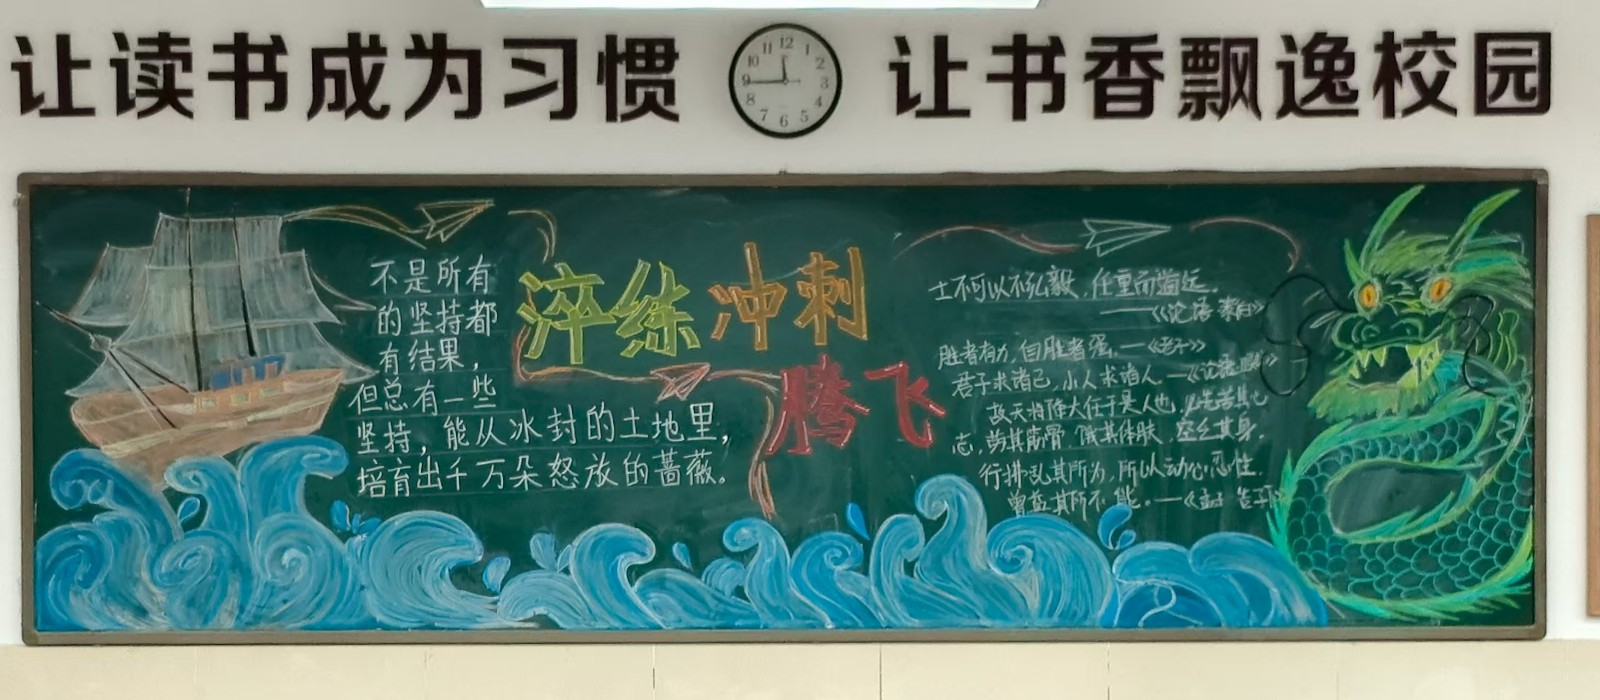 让读书成为习惯
12 1 2 3 4 5 6 7 8 9 10 11
让书香飘逸校园
不是所有
的坚持都
有结果，
但总有一些
坚持，能从冰封的土地里，
培育出千万朵怒放的蔷薇。
淬练冲刺
腾飞
士不可以不弘毅，任重而道远。
——《论语·泰伯》
胜者有力，自胜者强。—《老子》
君子求诸己，小人求诸人。—《论语》
故天将降大任于是人也，必先苦其心
志，劳其筋骨，饿其体肤，空乏其身，
行拂乱其所为，所以动心忍性，
曾益其所不能。—《孟子·告子下》